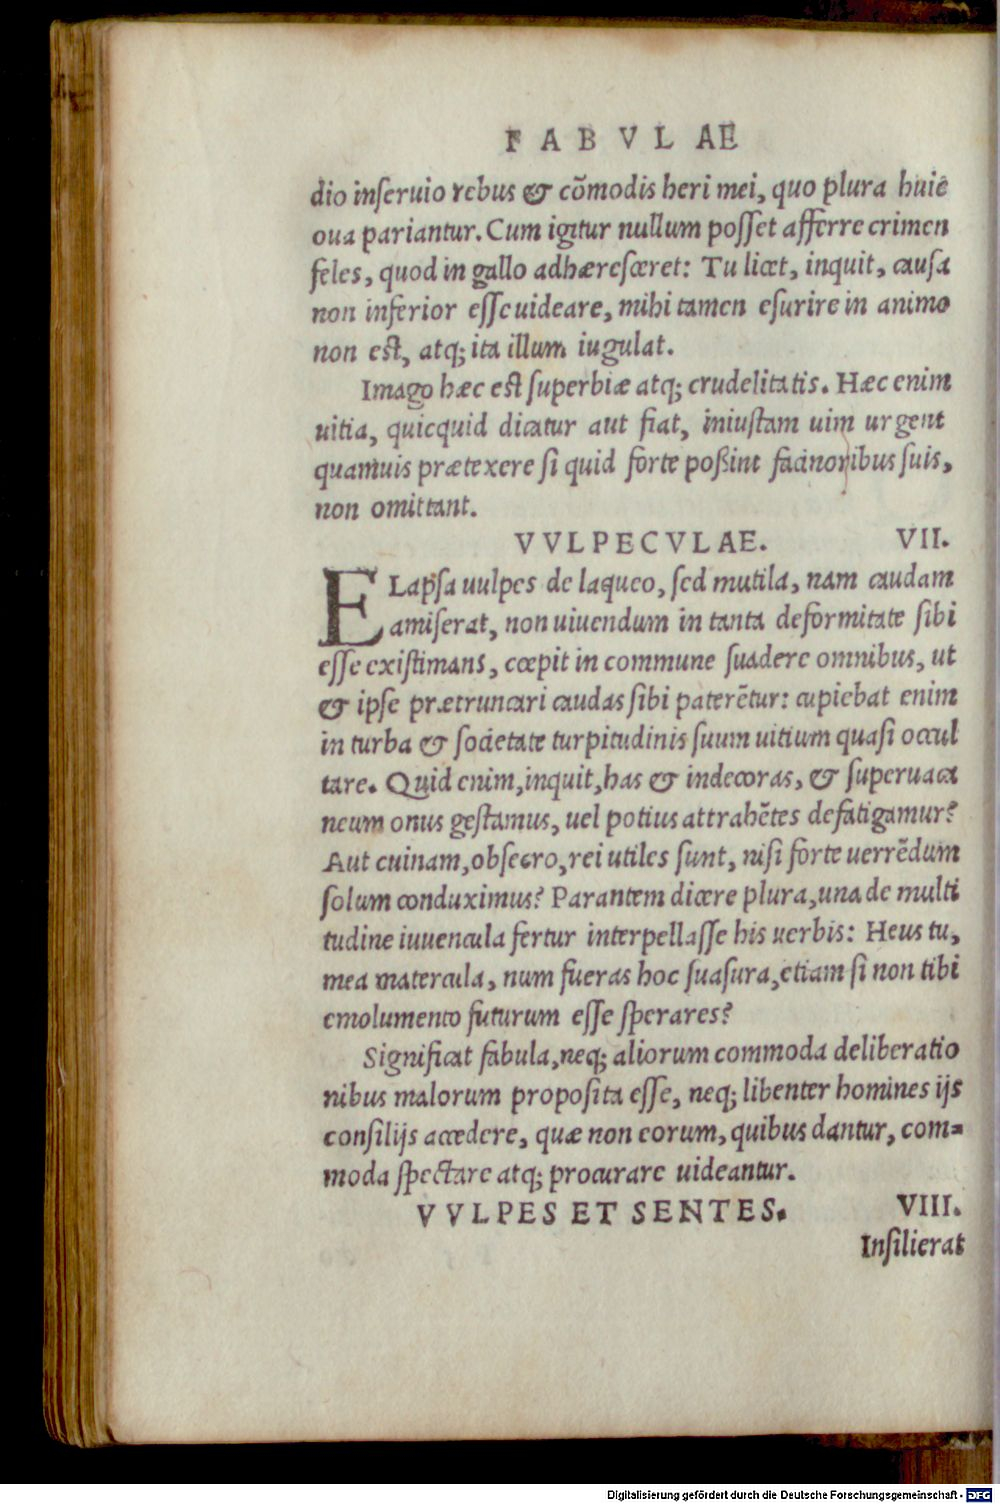 FABVLAE
dio inseruio rebus & cõmodis heri mei, quo plura huic
oua pariantur. Cum igitur nullum posset afferre crimen
feles, quod in gallo adhæresceret: Tu licet, inquit, causa
non inferior esse uideare, mihi tamen esurire in animo
non est, atq; ita illum iugulat.
Imago hæc est superbiæ atq; crudelitatis. Hæc enim
uitia, quicquid dicatur aut fiat, iniustam uim urgent
quamuis prætexere si quid forte poßint facinoribus suis,
non omittant.
VVLPECVLAE. VII.
ELapsa uulpes de laqueo, sed mutila, nam caudam
amiserat, non uiuendum in tanta deformitate sibi
esse existimans, cœpit in commune suadere omnibus, ut
& ipse prætruncari caudas sibi paterẽtur: cupiebat enim
in turba & societate turpitudinis suum uitium quasi occul
tare. Quid enim, inquit, has & indecoras, & superuaca
neum onus gestamus, uel potius attrahẽtes defatigamur?
Aut cuinam, obsecro, rei utiles sunt, nisi forte uerrẽdum
solum conduximus? Parantem dicere plura, una de multi
tudine iuuencula fertur interpellasse his uerbis: Heus tu,
mea matercula, num fueras hoc suasura, etiam si non tibi
emolumento futurum esse sperares?
Significat fabula, neq; aliorum commoda deliberatio
nibus malorum proposita esse, neq; libenter homines ijs
consilijs accedere, quæ non eorum, quibus dantur, com=
moda spectare atq; procurare uideantur.
VVLPES ET SENTES. VIII.
Insilierat
Digitalisierung gefördert durch die Deutsche Forschungsgemeinschaft - DFG